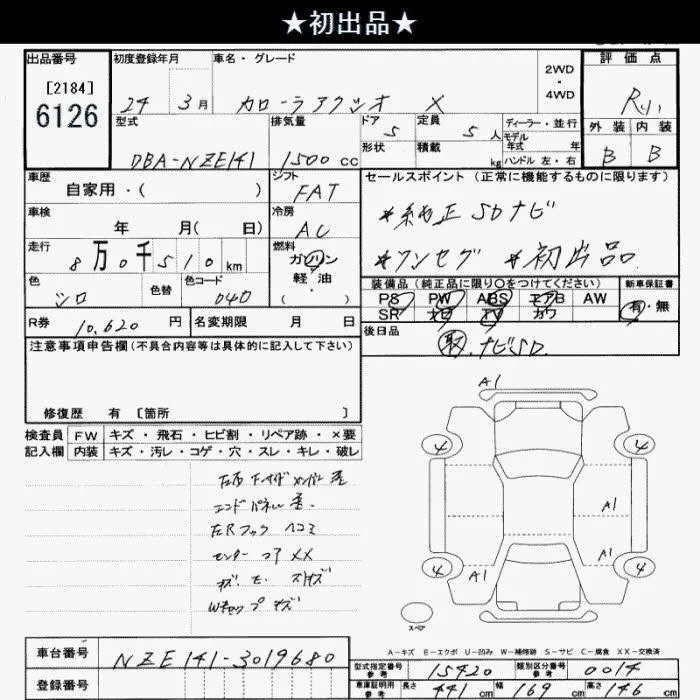 ★初出品★
出品番号 初度登録年月 車名・グレード 2WD・4WD 評価点
[2184]
6126 24 3月 カローラアクシオ X R
型式 排気量 ドア 定員 ディーラー・並行 外装 内装
DBA-NZE141 1500cc 5 5人 モデル年式 年 B B
形状 積載 kg ハンドル 左・右
車歴 シフト セールスポイント(正常に機能するものに限ります)
自家用・( ) FAT *純正SDナビ
車検 冷房
年 月( 日) AC *ワンセグ *初出品
走行 燃料
8万0千510km ガソリン 軽油・
色 色替 色コード 装備品(純正品に限り○をつけてください) 新車保証書
シロ 040 PS PW ABS エアB AW 有・無
SR カワ
R券 10,620円 名変期限 月 日 後日品
取.ナビSD.
注意事項申告欄(不具合内容等は具体的に記入して下さい)
修復歴 有 [箇所 ]
検査員 FW キズ・飛石・ヒビ割・リペア跡・×要
記入欄 内装 キズ・汚レ・コゲ・穴・スレ・キレ・破レ
エンドパネル
センター コア XX
A1
4 4
A1
A1
4 A1 4
スペア
A-キズ E-エクボ U-凹み W-補修跡 S-サビ C-腐食 XX-交換済
車台番号 NZE141-3019680
型式指定番号 参考 15420 類別区分番号 参考 0014
登録番号
車庫証明用 参考 長さ 441cm 幅 169cm 高さ 146cm